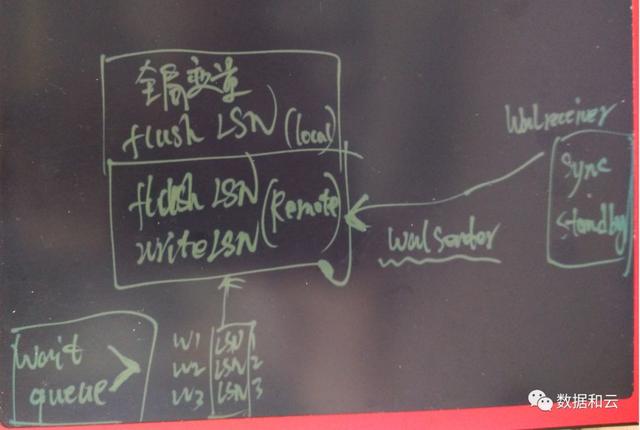 全局变量
flush LSN (local)
flush LSN
write LSN (Remote)
Walreceiver
Sync
standby
Walsender
Wait
queue
W1 LSN 1
W2 LSN 2
W3 LSN 3
数据和云